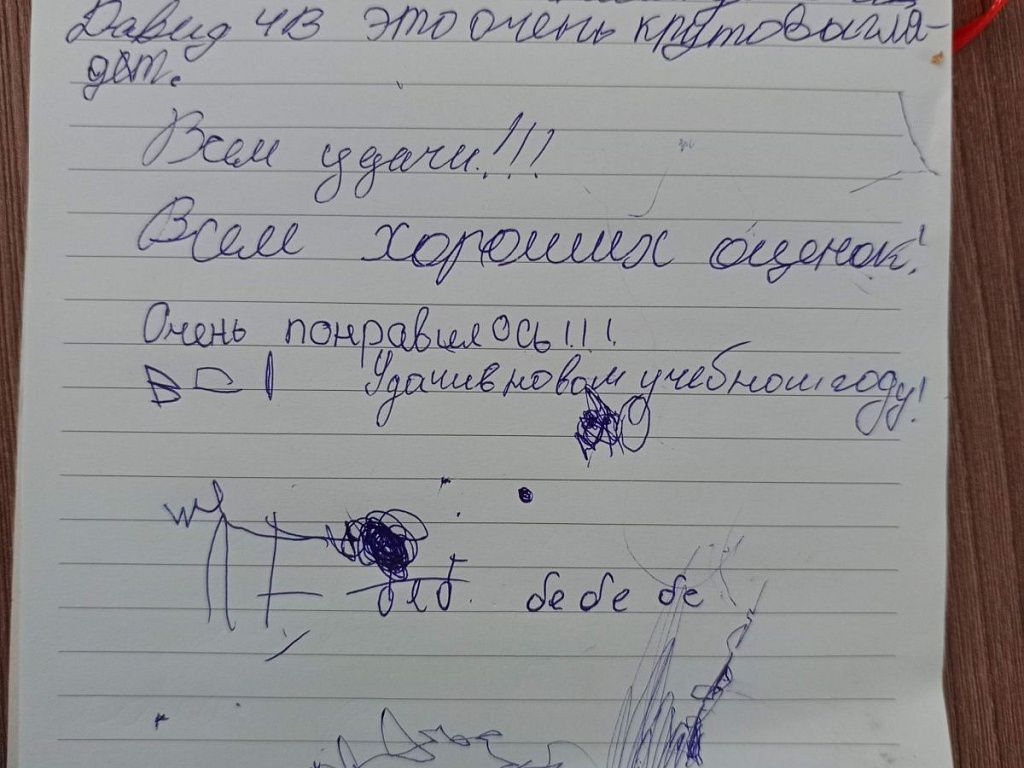 Давид 4В это очень круто выгля-
дет.
Всем удачи!!!
Всем хороших оценок!
Очень понравилось!!!
Удачи в новом учебном году!
бе бе бе